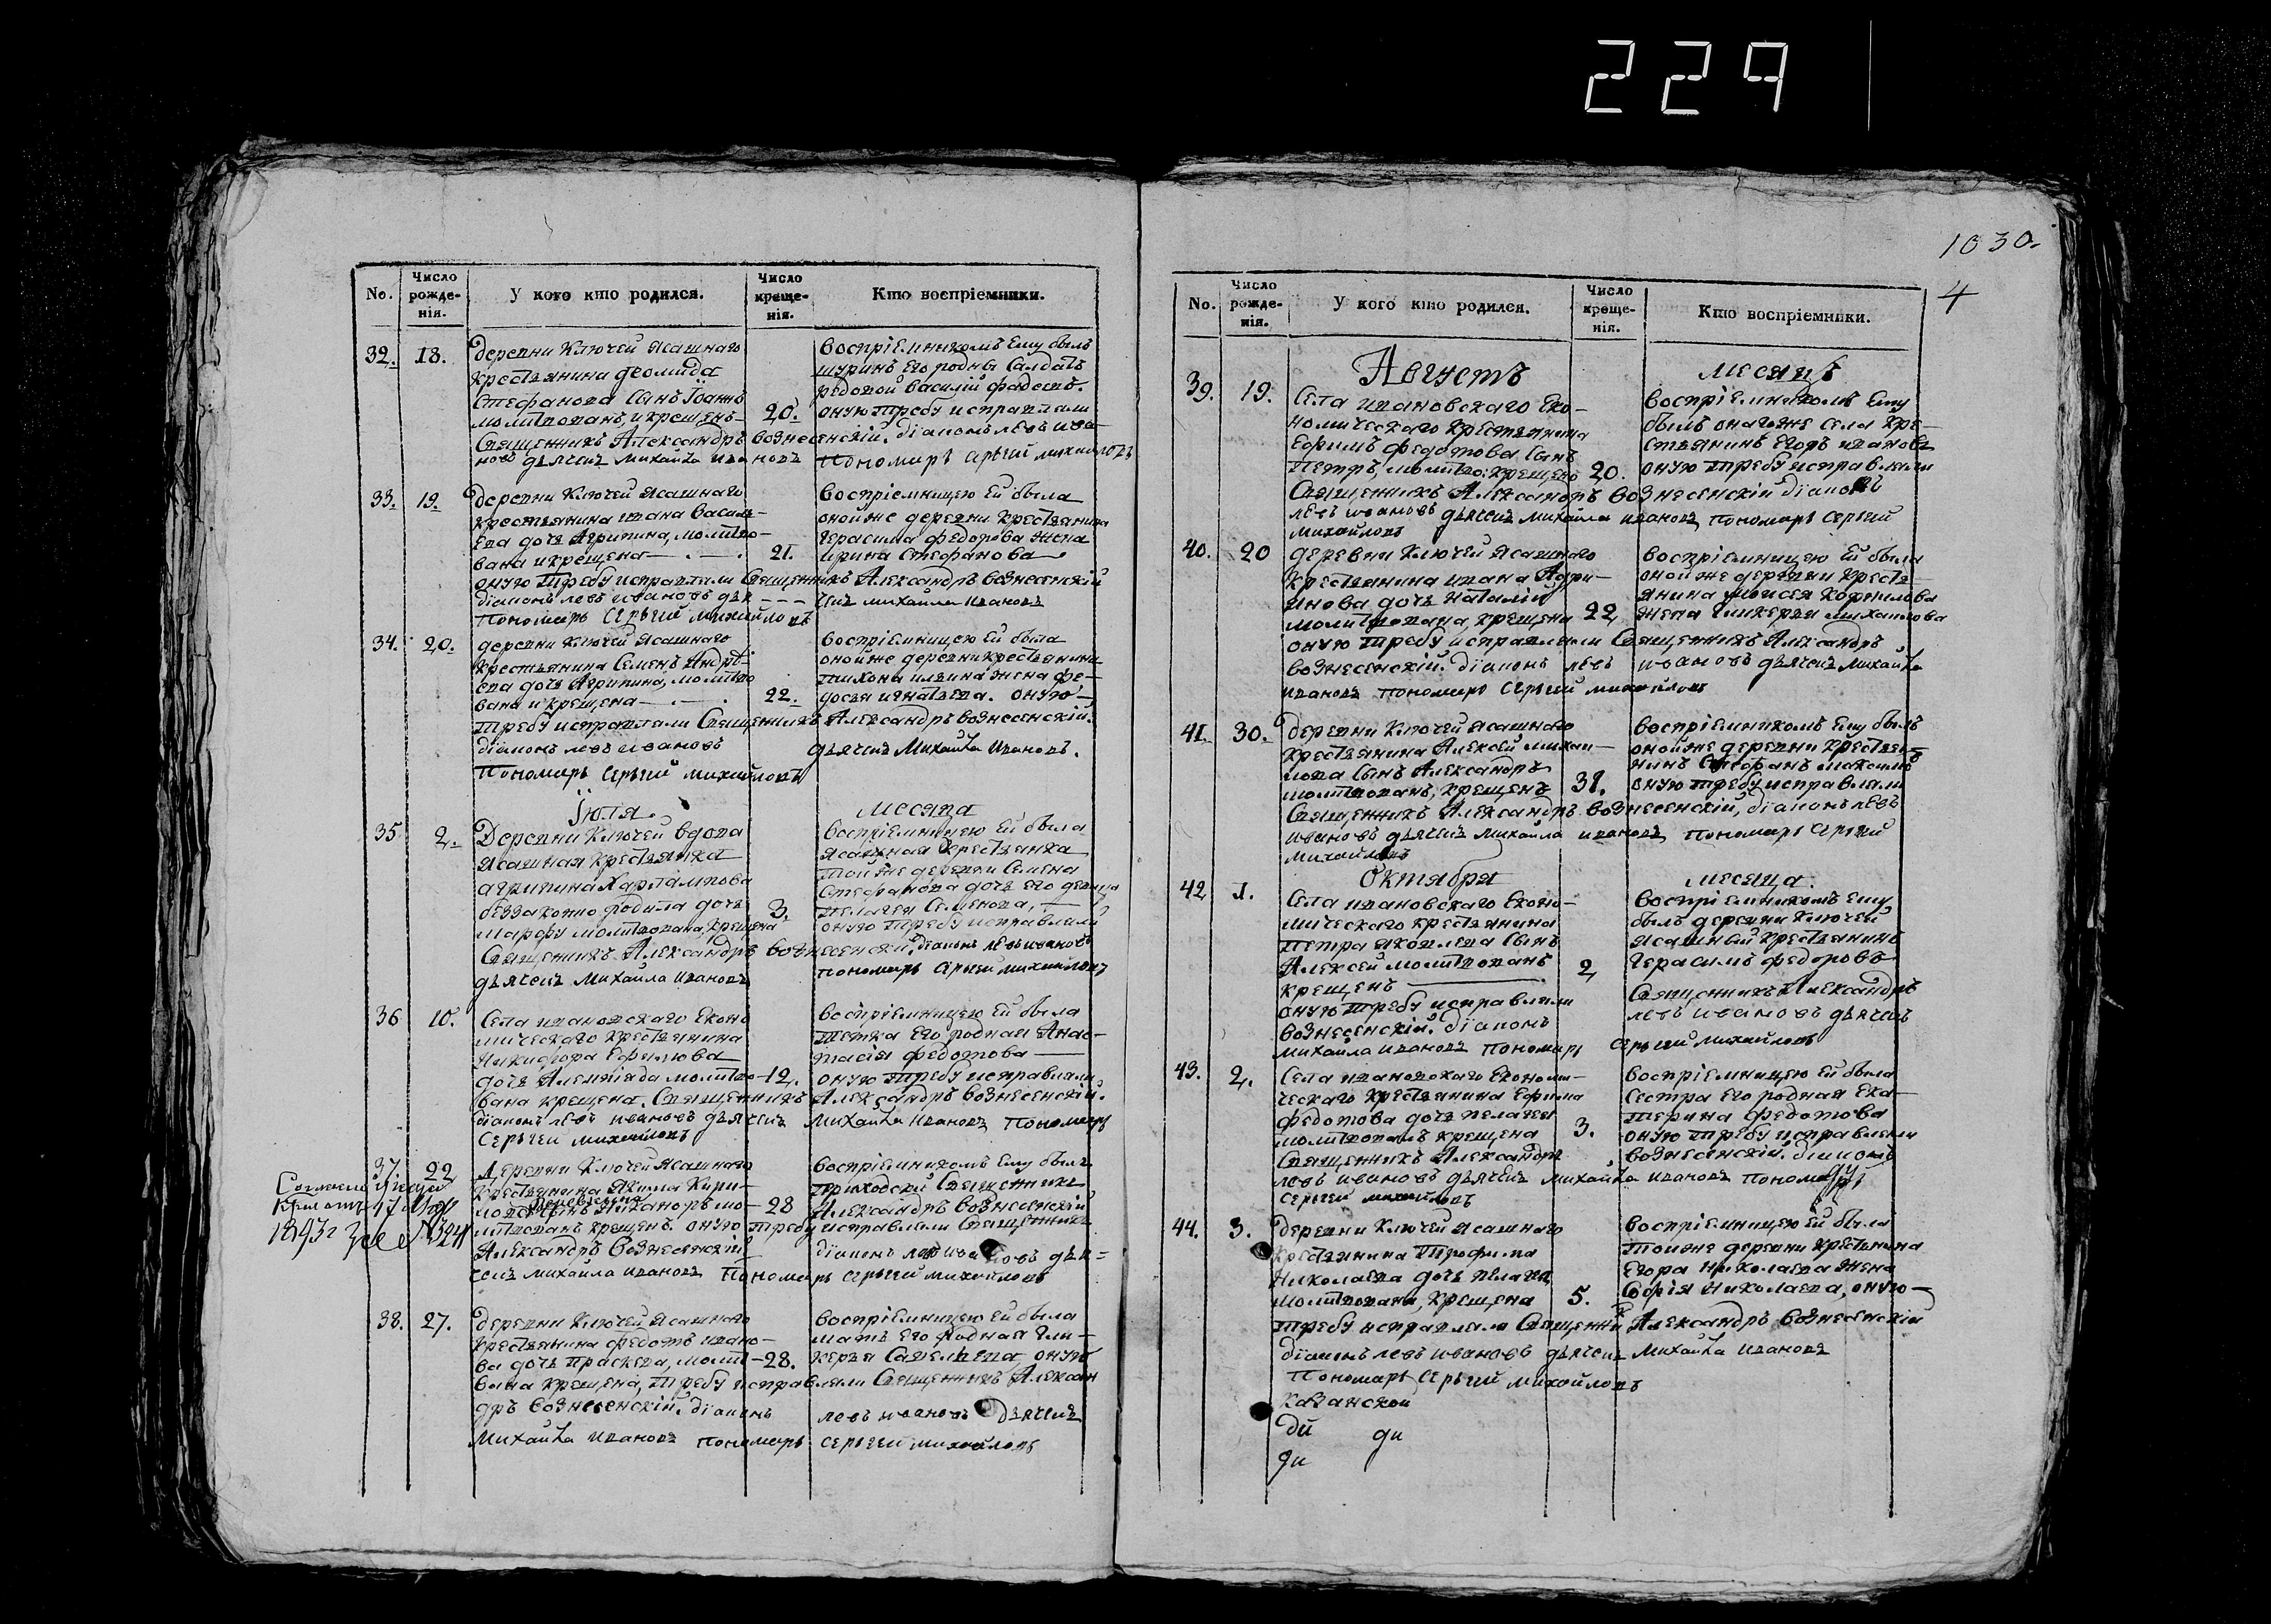 229
1030.
4
No.
Число рожде-нія.
У кого кто родился.
Число креще-нія.
Кто воспріемники.
32. 18.
деревни Ключей ясашнаго
крестьянина Деомида
Стефанова сынъ Іоаннъ
молитвованъ, и крещенъ 20.
воспріемникомъ ему былъ
шуринъ его родны салдатъ
редовой Василій Фадеевъ.
оную требу исправляли
Священникъ Александръ Вознесенскій. діаконъ левъ ива-
новъ дьячекъ Михайла Ивановъ пономарь Сергий михайловъ
33. 19.
деревни Ключей ясашнаго
крестьянина ивана Василь-
ева дочь Агрипина, молитво-
вана и крещена 21.
воспріемницею ей была
оной же деревни крестьянина
герасима федорова жена
ирина Стефанова
оную требу исправляли Священникъ Александръ Вознесенскій
діаконъ левъ ивановъ дья- - - чекъ михайла Ивановъ
Пономарь Сергий михайловъ
34. 20.
деревни Ключей ясашнаго
крестьянина Семенъ Андре-
ева дочь Агрипина, молитво
вана и крещена 22.
воспріемницею ей была
оной же деревни крестьянина
тихона ильина жена фе-
досья игнатьева. оную
требу исправляли Священникъ Александръ Вознесенскій.
діаконъ левъ ивановъ дьячекъ Михайла Ивановъ.
Пономарь Сергий михайловъ
Іюля месяца
35 2.
Деревни Ключей вдова
ясашная крестьянка
агрипина Харлампова
беззаконно родила дочь 3.
марфу молитвована, крещена
воспріемницею ей была
ясашная крестьянка
той же деревни Семена
Стефанова дочь его девица
пелагея Семенова,
оную требу исправляли
Священникъ Александръ Вознесенскій. діаконъ левъ ивановъ
дьячекъ Михайла Ивановъ пономарь Сергий михайловъ
36 10.
Села ивановскаго Еконо
мическаго крестьянина
Никифора Ефимова
дочь молитво- 12.
воспріемницею ей была
тетка его родная Анас-
тасія федотова
оную требу исправляли
вана крещена. Священникъ Александръ Вознесенскій.
діаконъ левъ ивановъ дьячекъ Михайла Ивановъ пономарь
Сергий михайловъ
37. 22
Деревни Ключей ясашнаго
крестьянина Якима Кири-
лова сынъ Никаноръ мо- 28
воспріемникомъ ему былъ
приходски священникъ
Александръ Вознесенскій
литвованъ крещенъ. оную требу исправляли Священникъ
Александръ Вознесенскій діаконъ левъ ивановъ дья=
чекъ михайла Ивановъ Пономарь Сергий михайловъ
38. 27.
деревни Ключей ясашнаго
крестьянина федотъ ивано-
ва дочь праскева, молит- 28.
воспріемницею ей была
мать его родная гли-
керья Савельева, оную
вана крещена, требу исправляли Священникъ Александ
ръ Вознесенскій. діаконъ левъ ивановъ дьячекъ
Михайла Ивановъ пономарь Сергий михайловъ
No.
Число рожде-нія.
У кого кто родился.
Число креще-нія.
Кто воспріемники.
Августъ месяцъ
39. 19.
Села ивановскаго Еко-
номическаго крестьянина
Ефимъ федотова сынъ
Петръ, молитво: крещенъ 20.
воспріемникомъ ему
былъ онагоже села кре-
стьянинъ Егоръ ивановъ
оную требу исправляли
Священникъ Александръ Вознесенскій діаконъ
левъ ивановъ дьячекъ михайла ивановъ пономарь Сергий
михайловъ
40. 20
деревни Ключей ясашнаго
крестьянина ивана Адри-
янова дочь наталія
молитвована, крещена 22
воспріемницею ей была
оной же деревни кресть-
янина Мойсея корнилова
жена гликерья михайлова
оную требу исправляли Священникъ Александръ
Вознесенскій. діаконъ левъ ивановъ дьячекъ Михайла
Ивановъ пономарь Сергий михайловъ
41. 30.
деревни Ключей ясашнаго
крестьянина Алексей михаи-
лова сынъ Александръ
молитвованъ, крещенъ 31.
воспріемникомъ ему былъ
оной же деревни крестья-
нинъ Стефанъ
оную требу исправляли
Священникъ Александръ Вознесенскій, діаконъ левъ
ивановъ дьячекъ михайла ивановъ пономарь Сергий
михайловъ
Октября месяца.
42 1.
Села ивановскаго Еконо-
мическаго крестьянина
петра яковлева сынъ
Алексей молитвованъ 2
крещенъ
воспріемникомъ ему
былъ деревни Ключей
ясашный крестьянинъ
герасимъ федоровъ
оную требу исправляли Священникъ Александръ
Вознесенскій. діаконъ левъ ивановъ дьячекъ
михайла ивановъ пономарь Сергий михайловъ
43. 2.
Села ивановскаго Економи-
ческаго крестьянина Ефима
федотова дочь пелагея
молитвованъ крещена 3.
воспріемницею ей была
Сестра его родная Ека-
терина федотова
оную требу исправляли
Священникъ Александръ Вознесенскій. діаконъ
левъ ивановъ дьячекъ михайла ивановъ пономарь
Сергий михайловъ
44. 3.
деревни Ключей ясашнаго
крестьянина Трофима
Николаева дочь пелагея
молитвована, крещена 5.
воспріемницею ей была
тойже деревни крестьянина
Егора николаева жена
Софія Николаева, оную
требу исправляли Священникъ Александръ Вознесенскій
діаконъ левъ ивановъ дьячекъ Михайла Ивановъ
Пономарь Сергий михайловъ
Казанской
ди ди
ди